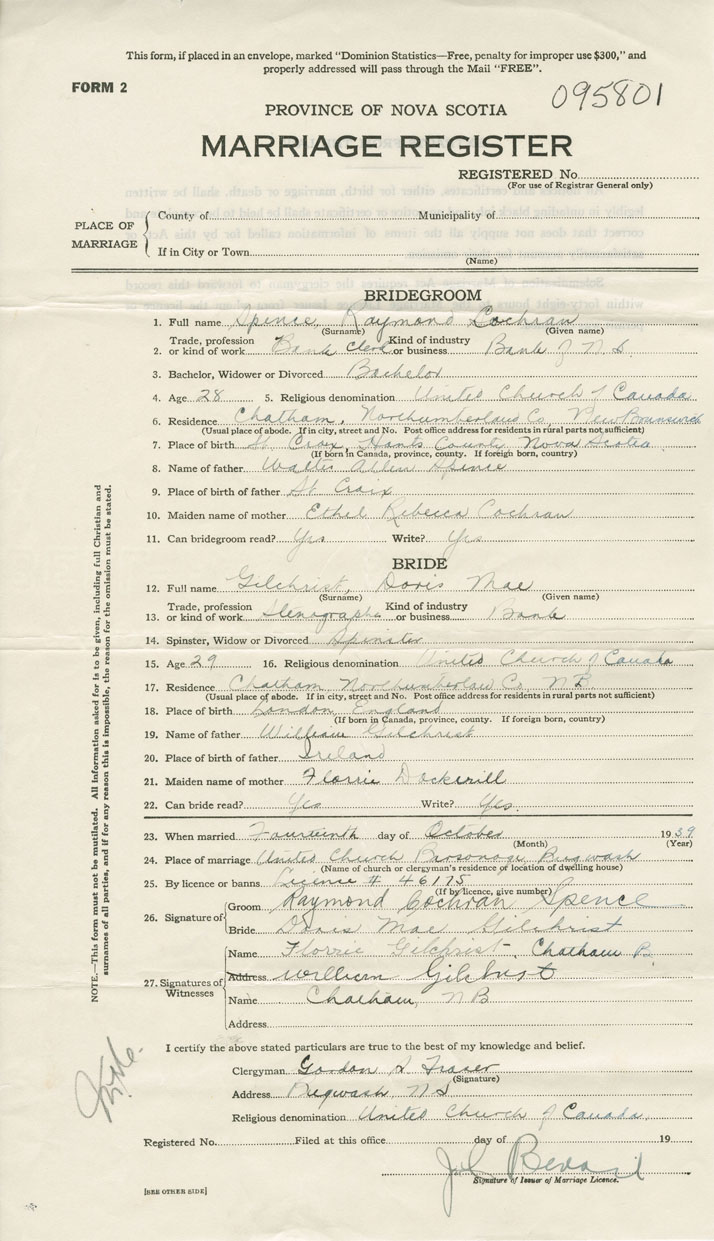 This form, if placed in an envelope, marked "Dominion Statistics—Free, penalty for improper use $300," and
properly addressed will pass through the Mail "FREE".
FORM 2
095801
PROVINCE OF NOVA SCOTIA
MARRIAGE REGISTER
REGISTERED No.
(For use of Registrar General only)
PLACE OF MARRIAGE
County of Municipality of
If in City or Town
(Name)
BRIDEGROOM
1. Full name Spence, Raymond Cochran
(Surname) (Given name)
2. Trade, profession or kind of work Bank Clerk Kind of industry or business Bank of N.S.
3. Bachelor, Widower or Divorced Bachelor
4. Age 28 5. Religious denomination United Church of Canada
6. Residence Chatham, Northumberland Co, New Brunswick
(Usual place of abode. If in city, street and No. Post office address for residents in rural parts not sufficient)
7. Place of birth St Croix, Hants County Nova Scotia
(If born in Canada, province, county. If foreign born, country)
8. Name of father Walter Allen Spence
9. Place of birth of father St Croix
10. Maiden name of mother Ethel Rebecca Cochran
11. Can bridegroom read? Yes Write? Yes
BRIDE
12. Full name Gilchrist, Doris Mae
(Surname) (Given name)
13. Trade, profession or kind of work Stenographer Kind of industry or business Bank
14. Spinster, Widow or Divorced Spinster
15. Age 29 16. Religious denomination United Church of Canada
17. Residence Chatham, Northumberland Co, N.B.
(Usual place of abode. If in city, street and No. Post office address for residents in rural parts not sufficient)
18. Place of birth London England
(If born in Canada, province, county. If foreign born, country)
19. Name of father William Gilchrist
20. Place of birth of father Ireland
21. Maiden name of mother Florrie Dockerill
22. Can bride read? Yes Write? Yes.
23. When married Fourteenth day of October 1939
(Month) (Year)
24. Place of marriage United Church Parsonage Pugwash
(Name of church or clergyman's residence or location of dwelling house)
25. By licence or banns License # 46175
(If by licence, give number)
26. Signature of
Groom Raymond Cochran Spence
Bride Doris Mae Gilchrist
27. Signatures of Witnesses
Name Florrie Gilchrist, Chatham
Address William Gilchrist
Name Chatham, NB
Address
I certify the above stated particulars are true to the best of my knowledge and belief.
Clergyman Gordon L. Fraser
(Signature)
Address Pugwash, NS
Religious denomination United Church of Canada
Registered No. Filed at this office day of 19
Signature of Issuer of Marriage Licence.
[SEE OTHER SIDE]
NOTE.—This form must not be mutilated. All information asked for is to be given, including full Christian and
surnames of all parties, and if for any reason this is impossible, the reason for the omission must be stated.